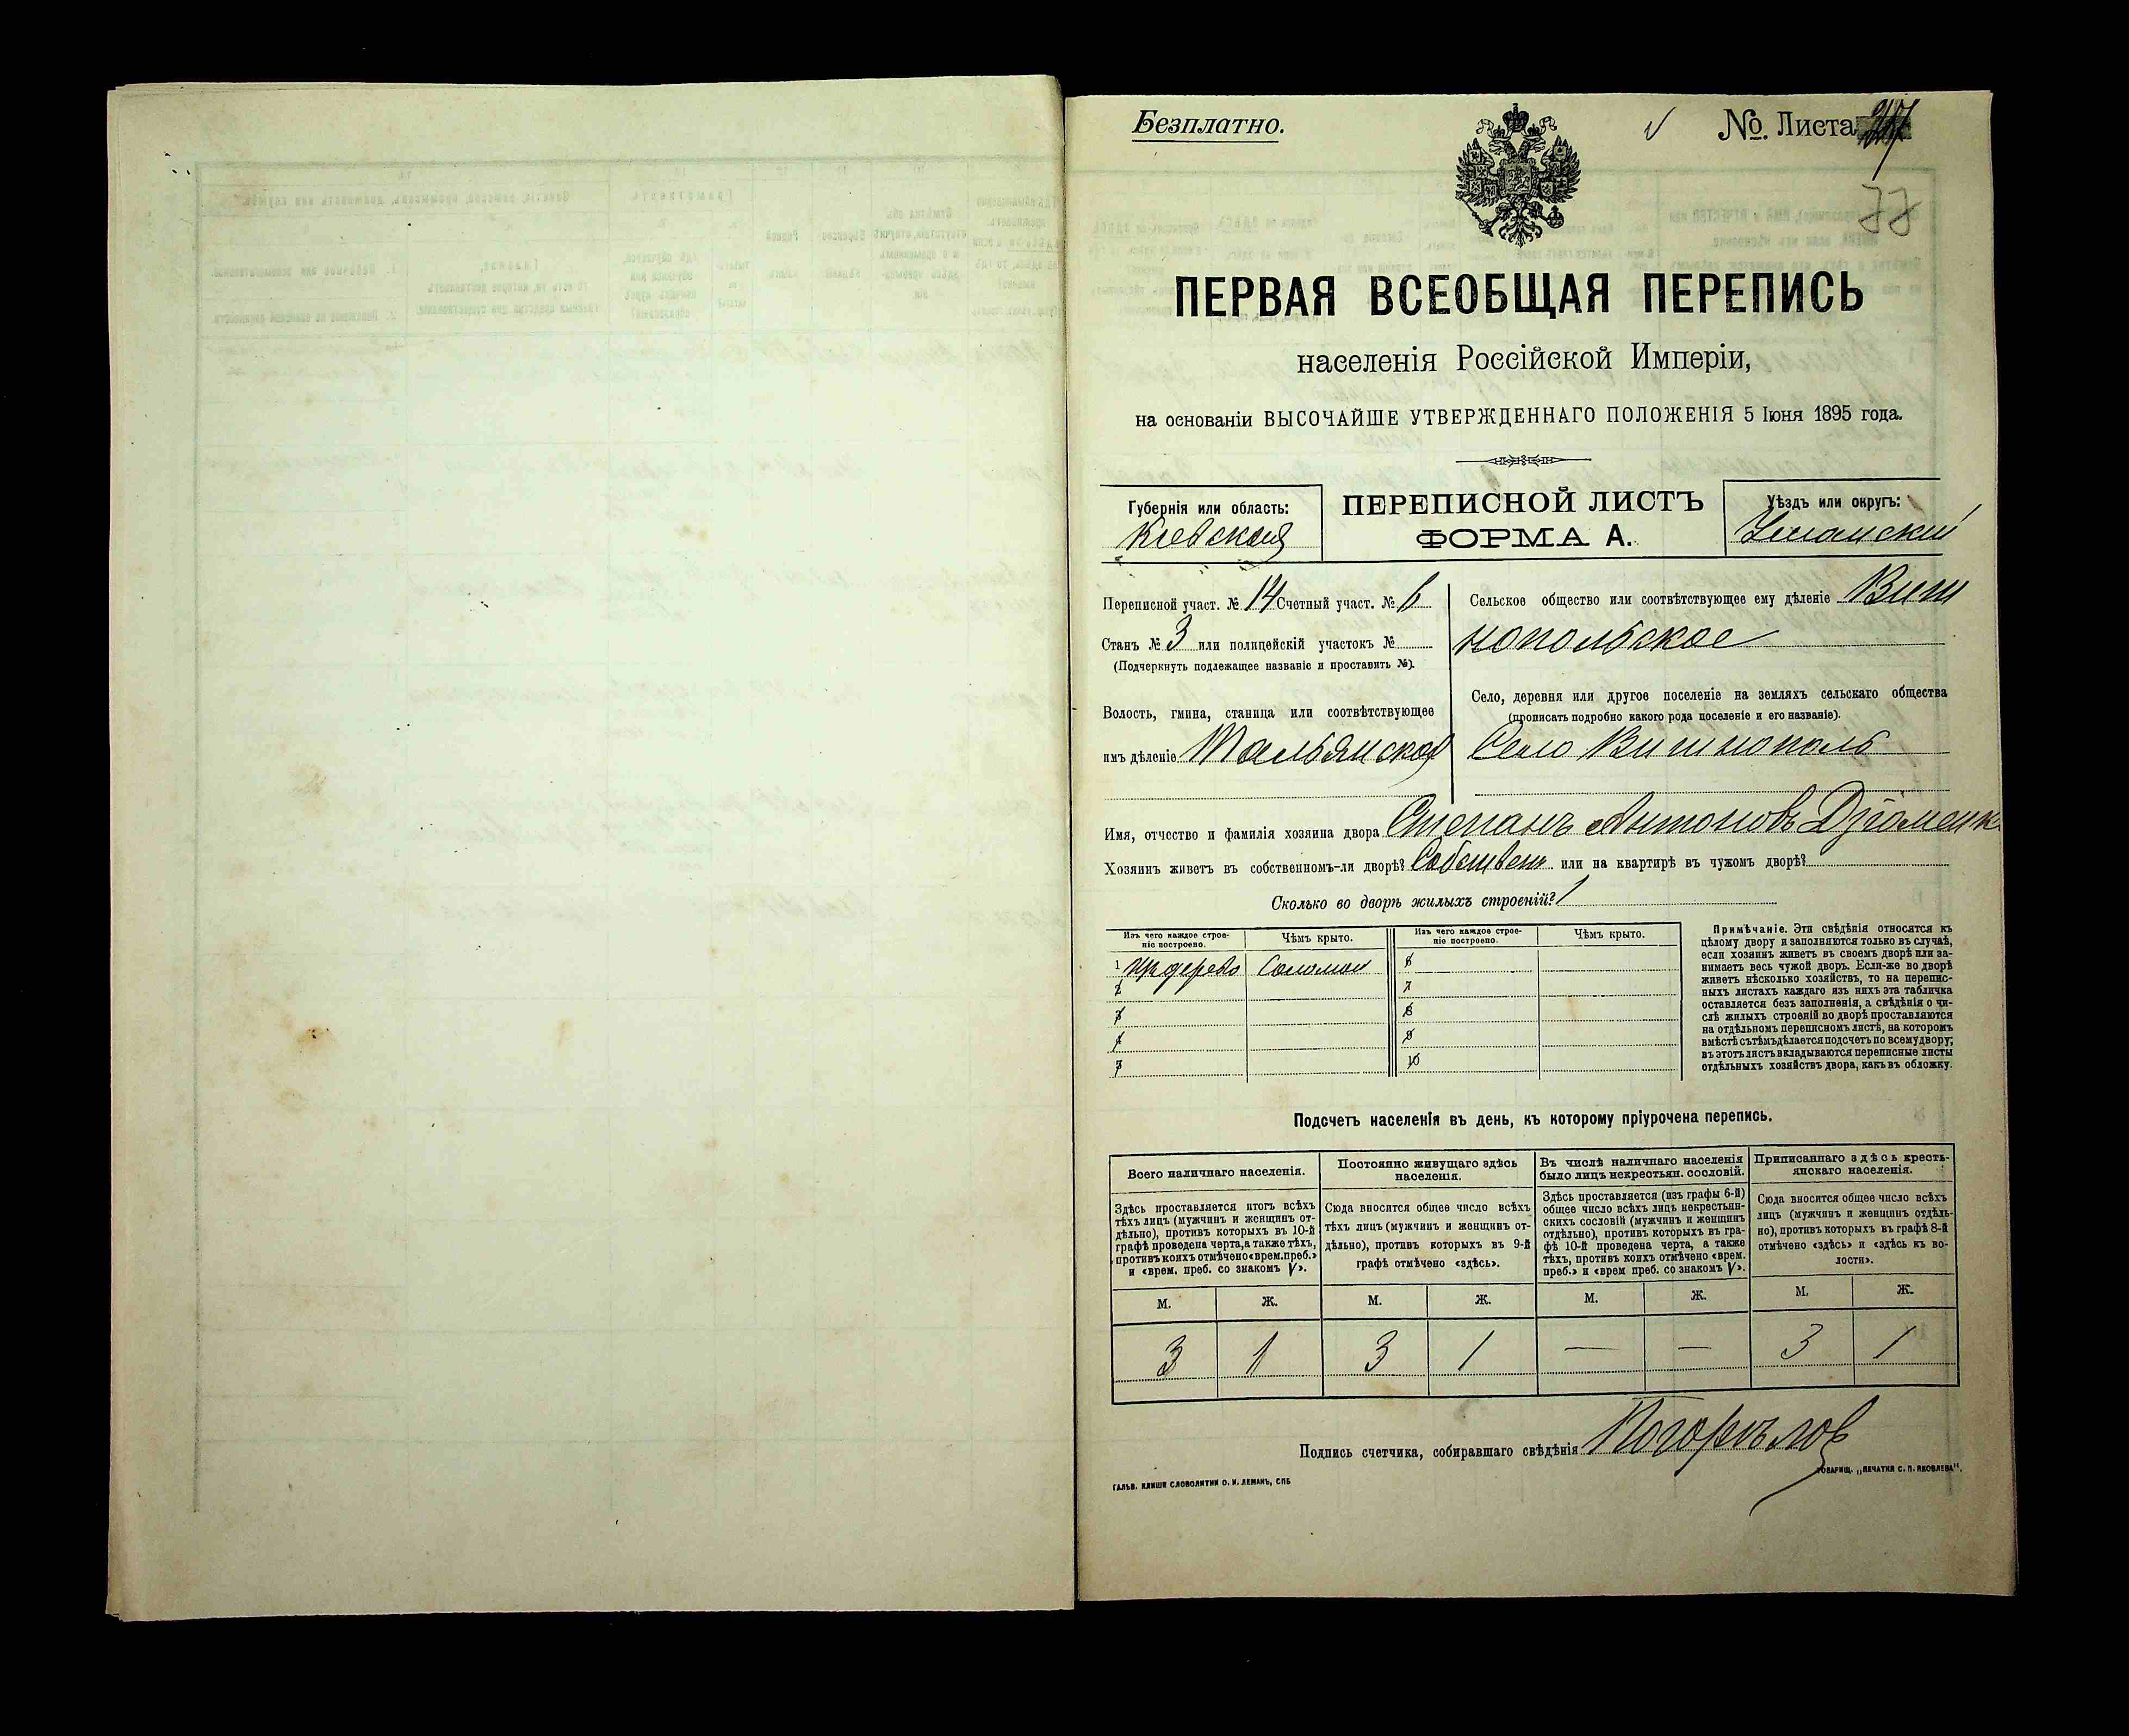 Безплатно.
№ Листа
77
ПЕРВАЯ ВСЕОБЩАЯ ПЕРЕПИСЬ
населенія Россійской Имперіи,
на основаніи ВЫСОЧАЙШЕ УТВЕРЖДЕННАГО ПОЛОЖЕНІЯ 5 Іюня 1895 года.
Губернія или область:
Кіевская
ПЕРЕПИСНОЙ ЛИСТЪ
ФОРМА А.
Уѣздъ или округъ:
Уманскій
Переписной участ. № 14 Счетный участ. № 6
Станъ № 3 или полицейскій участокъ №
(Подчеркнуть подлежащее названіе и проставить №).
Волость, гмина, станица или соотвѣтствующее
имъ дѣленіе Тальянская
Сельское общество или соотвѣтствующее ему дѣленіе Виш
нопольское
Село, деревня или другое поселеніе на земляхъ сельскаго общества
(прописать подробно какого рода поселеніе и его названіе).
Село Вишнополь
Имя, отчество и фамилія хозяина двора Степанъ Антоновъ
Хозяинъ живетъ въ собственномъ-ли дворѣ? Собствен или на квартирѣ въ чужомъ дворѣ?
Сколько во дворѣ жилыхъ строеній? 1
Изъ чего каждое строе-
ніе построено.
Чѣмъ крыто.
Изъ чего каждое строе-
ніе построено.
Чѣмъ крыто.
1 Соломой
2
3
4
5
6
7
8
9
10
Примѣчаніе. Эти свѣдѣнія относятся къ
цѣлому двору и заполняются только въ случаѣ,
если хозяинъ живетъ въ своемъ дворѣ или за-
нимаетъ весь чужой дворъ. Если-же во дворѣ
живетъ нѣсколько хозяйствъ, то на перепис-
ныхъ листахъ каждаго изъ нихъ эта табличка
оставляется безъ заполненія, а свѣдѣнія о чи-
слѣ жилыхъ строеній во дворѣ проставляются
на отдѣльномъ переписномъ листѣ, на которомъ
вмѣстѣ съ тѣмъ дѣлается подсчетъ по всему двору;
въ этотъ листъ вкладываются переписные листы
отдѣльныхъ хозяйствъ двора, какъ въ обложку.
Подсчетъ населенія въ день, къ которому пріурочена перепись.
Всего наличнаго населенія.
Здѣсь проставляется итогъ всѣхъ
тѣхъ лицъ (мужчинъ и женщинъ от-
дѣльно), противъ которыхъ въ 10-й
графѣ проведена черта, а также тѣхъ,
противъ коихъ отмѣчено «врем. преб.»
и «врем. преб. со знакомъ V».
Постоянно живущаго здѣсь
населенія.
Сюда вносится общее число всѣхъ
тѣхъ лицъ (мужчинъ и женщинъ от-
дѣльно), противъ которыхъ въ 9-й
графѣ отмѣчено «здѣсь».
Въ числѣ наличнаго населенія
было лицъ некрестьян. сословій.
Здѣсь проставляется (изъ графы 6-й)
общее число всѣхъ лицъ некрестьян-
скихъ сословій (мужчинъ и женщинъ
отдѣльно), противъ которыхъ въ гра-
фѣ 10-й проведена черта, а также
тѣхъ, противъ коихъ отмѣчено «врем.
преб.» и «врем преб. со знакомъ V».
Приписаннаго здѣсь кресть-
янскаго населенія.
Сюда вносится общее число всѣхъ
лицъ (мужчинъ и женщинъ отдѣль-
но), противъ которыхъ въ графѣ 8-й
отмѣчено «здѣсь» и «здѣсь къ во-
лости».
М. Ж. М. Ж. М. Ж. М. Ж.
3 1 3 1 — — 3 1
Подпись счетчика, собиравшаго свѣдѣнія Погорѣлов
ГАЛЬВ. КЛИШЕ СЛОВОЛИТНИ О. И. ЛЕМАНЪ, СПБ
ТОВАРИЩ. „ПЕЧАТНЯ С. П. ЯКОВЛЕВА".